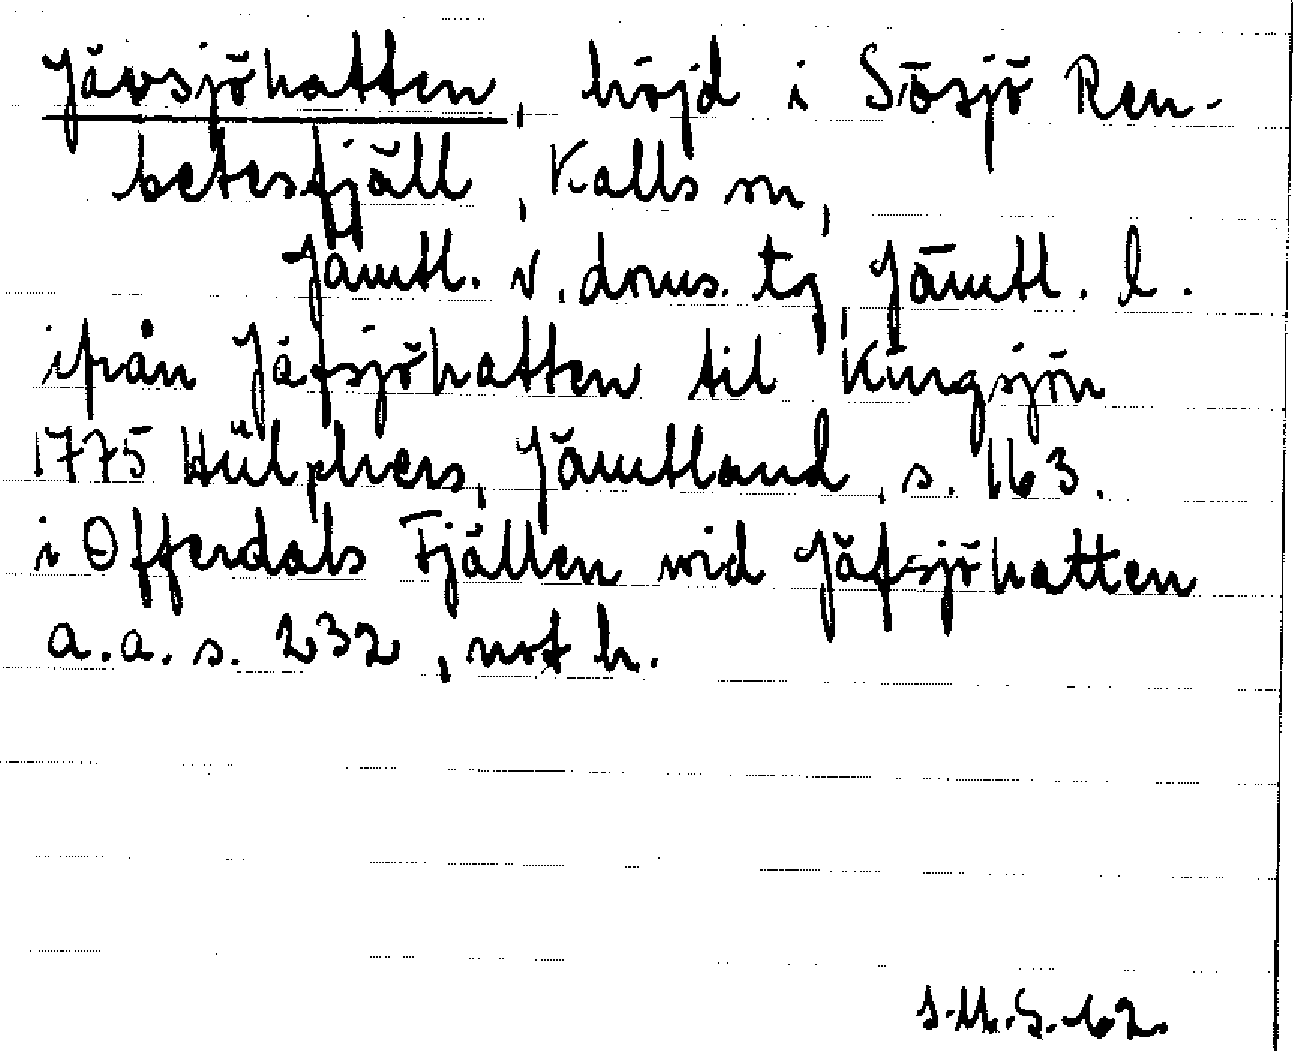 Jävsjöhatten, höjd i Sösjö Ren-
betesfjäll, Kalls sn,
Jämtl. v. doms. tg, Jämtl. l.
ifrån Jäfsjöhatten til Kingsjön
1775 Hülphers, Jämtland, s. 163.
i Offerdals Fjällen wid Jäfsjöhatten
a.a. s. 232, not h.